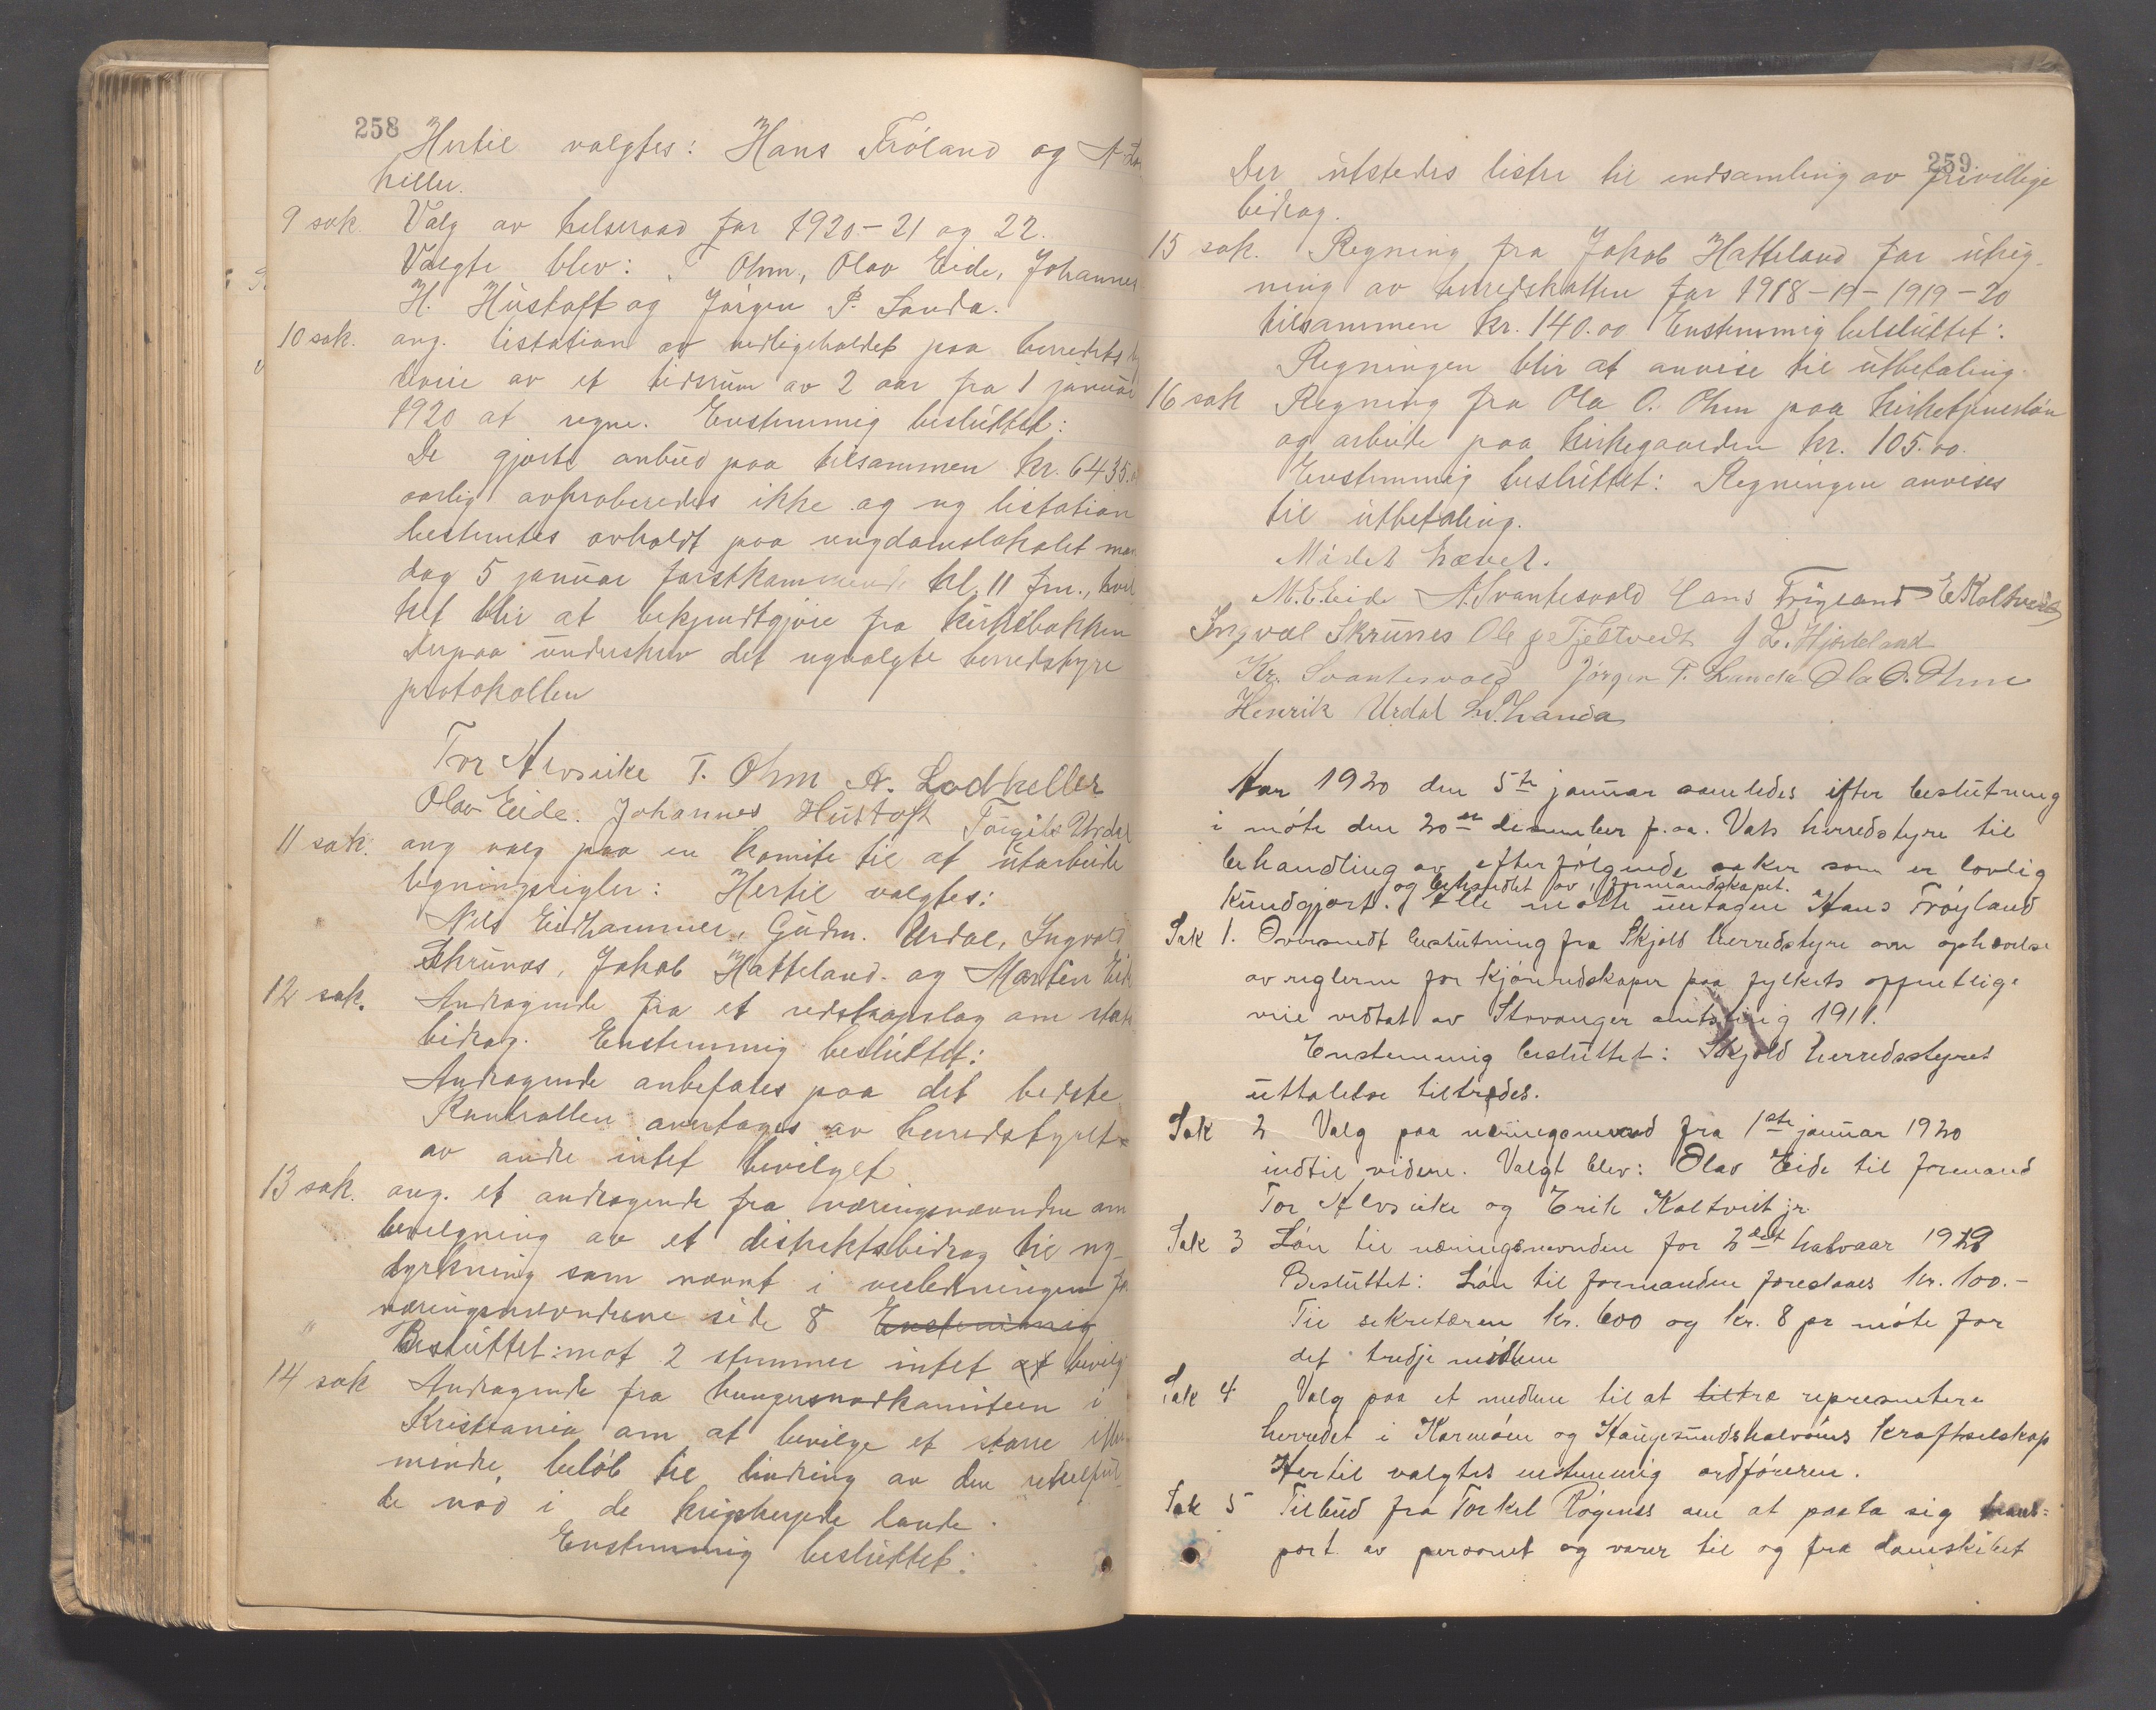 258
Hertil valgtes: Hans Fröland og A Lod
keller.
9 sak. Valg av helseraad for 1920-21 og 22.
Valgte blev: T Ohm, Olav Eide, Johannes
H. Hustoft og Jörgen P. Landa.
10 sak. ang. listation av vedligeholdet paa herredets
veie av et tidsrum av 2 aar fra 1 januar
1920 at regne. Enstemmig besluttet:
De gjorte anbud paa tilsammen kr. 6435.
aarlig approberedes ikke og ny listation
bestemtes avholdt paa ungdomslokalet man
dag 5 januar förstkommende kl. 11 fm., hvil
ket blir at bekjendtgjöre fra kirkebakken
Derpaa underskrev det nyvalgte herredstyre
protokollen
Tor Alvseike T. Ohm A. Lodkeller
Olav Eide. Johannes Hustoft Torgils Urdal
11 sak. ang valg paa en komite til at utarbeide
ligningsregler: Hertil valgtes:
Nils Eidhammer, Gudm. Urdal, Ingvald
Skrunes, Jakob Hatteland. og Martin Eide
12 sak. Andragende fra et redskapslag om stats
bidrag. Enstemmig besluttet:
Andragende anbefales paa det bedste
Kontrollen overtages av herredstyret
av andre intet bevilget
13 sak. ang. et andragende fra næringsnævnden om
bevilgning av et distriktsbidrag til ny-
dyrkning som nævnt i veiledningen for
næringsnævndene side 8 Enstemmig
Besluttet: mot 2 stemmer intet at bevilg
14 sak Andragende fra hungersnödkomiteen i
Kristiania om at bevilge et större eller
mindre belöb til lindring av den rædselsful-
de nöd i de krigsherjede lande.
Enstemmig besluttet:
259
Der utstedes lister til indsamling av frivillige
bidrag.
15 sak. Regning fra Jakob Hatteland for utreg-
ning av herredskatten for 1918-19-1919-20
tilsammen kr. 140.00 Enstemmig besluttet:
Regningen blir at anvise til utbetaling.
16 sak Regning fra Ola O. Ohm paa kirketjenerlön
og arbeide paa kirkegaarden kr. 105.00.
Enstemmig besluttet: Regningen anvises
til utbetaling.
Mödet hævet.
M.E. Eide A. Svantesvold Hans Fröyland E Koltveit
Ingval Skrunes Ole J. Fjeltvedt J L. Hjorteland
Kr. Svantesvold Jörgen P. Landa Ola O. Ohm
Henrik Urdal L. Landa
Aar 1920 den 5te januar samledes efter beslutning
i möte den 20de desember f.aa. Vats herredstyre til
behandling av efterfölgende saker som er lovlig
og behandlet av formandskapet.
kundgjort. Alle mötte untagen Hans Fröyland
Sak 1. Oversendt beslutning fra Skjold herredstyre om ophævelse
av reglerne for kjöreredskaper paa fylkets offentlige
veie vedtat av Stavanger amtsting 1911.
Enstemmig besluttet: Skjold herredsstyret
uttalelse tiltrædes.
Sak 2 Valg paa næringsnevnd fra 1ste januar 1920
indtil videre. Valgt blev: Olav Eide til formand
Tor Alvseike og Erik Koltveit jr.
Sak 3 Lön til næringsnevnden for 2det halvaar 1919
Besluttet: Lön til formanden foreslaaes kr. 100.-
Til sekretæren kr. 600 og kr. 8 pr möte for
det tredje medlem
Sak 4 Valg paa et medlem til at tiltræ representere
herredet i Karmöens og Haugesundshalvöens kraftselskap
Hertil valgtes enstemmig ordföreren.
Sak 5 Tilbud fra Torkel Rögenes om at paata sig trans=
port av personet og varer til og fra damskibet